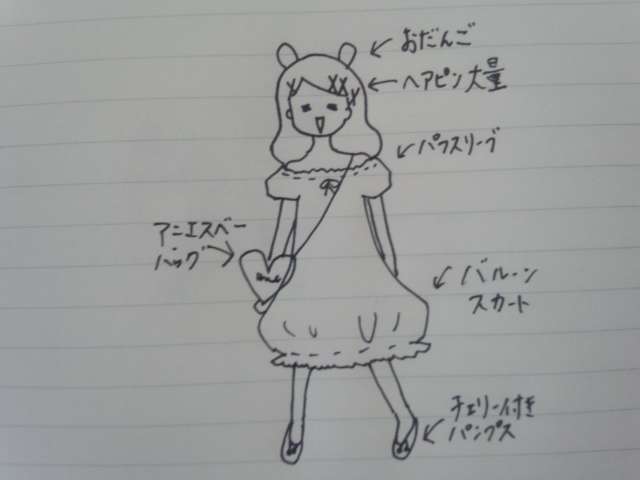 おだんご
ヘアピン大量
パフスリーブ
アニエスベー
バッグ
バルーン
スカート
チェリー付き
パンプス